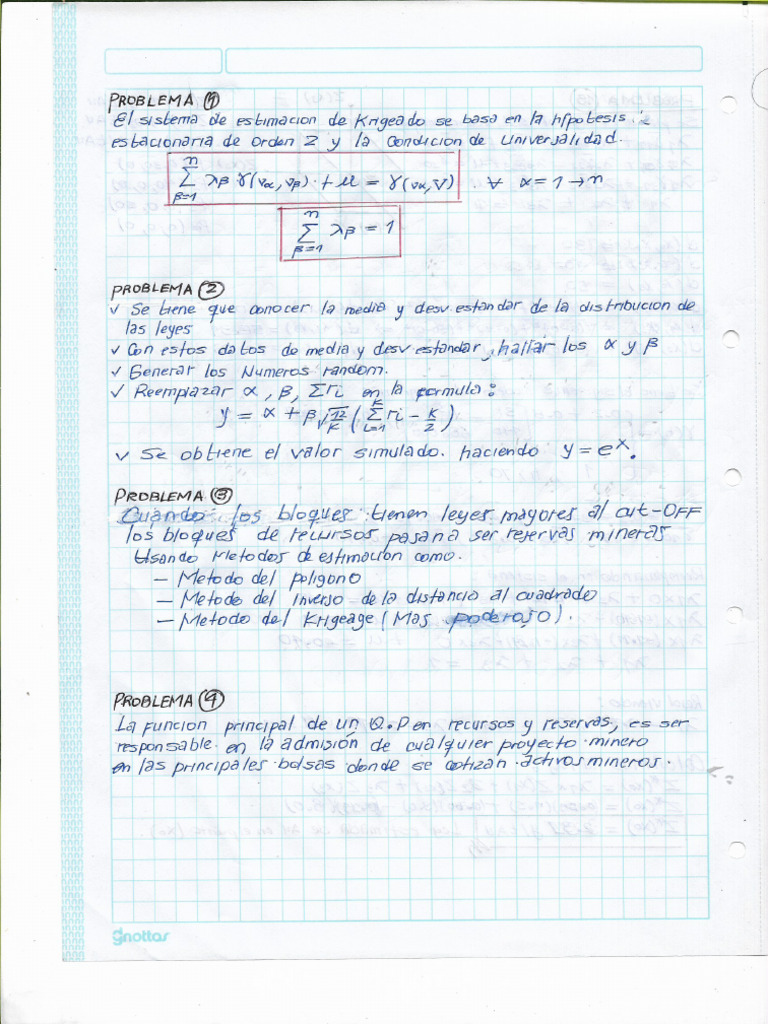 PROBLEMA ①
El sistema de estimacion de Krigeado se basa en la hipotesis
estacionaria de orden 2 y la condicion de Universalidad.
n
∑ λβ γ(vα, vβ) + μ = γ(vα, V) ∀ α = 1 → n
β=1
n
∑ λβ = 1
β=1
PROBLEMA ②
✓ Se tiene que conocer la media y desv estandar de la distribucion de
las leyes
✓ Con estos datos de media y desv estandar, hallar los α y β
✓ Generar los Numeros random.
✓ Reemplazar α, β, ∑ri en la formula:
y = α + β √12/k ( ∑ ri - k/2 )
✓ Se obtiene el valor simulado. haciendo y = eˣ.
PROBLEMA ③
Cuando los bloques tienen leyes mayores al cut-OFF
los bloques de recursos pasan a ser reservas mineras
Usando Metodos de estimacion como.
— Metodo del poligono
— Metodo del Inverso de la distancia al cuadrado
— Metodo del Krigeage (Mas poderoso).
PROBLEMA ④
La funcion principal de un Q.P en recursos y reservas, es ser
responsable en la admisión de cualquier proyecto minero
en las principales bolsas donde se cotizan activos mineros.
gnottas